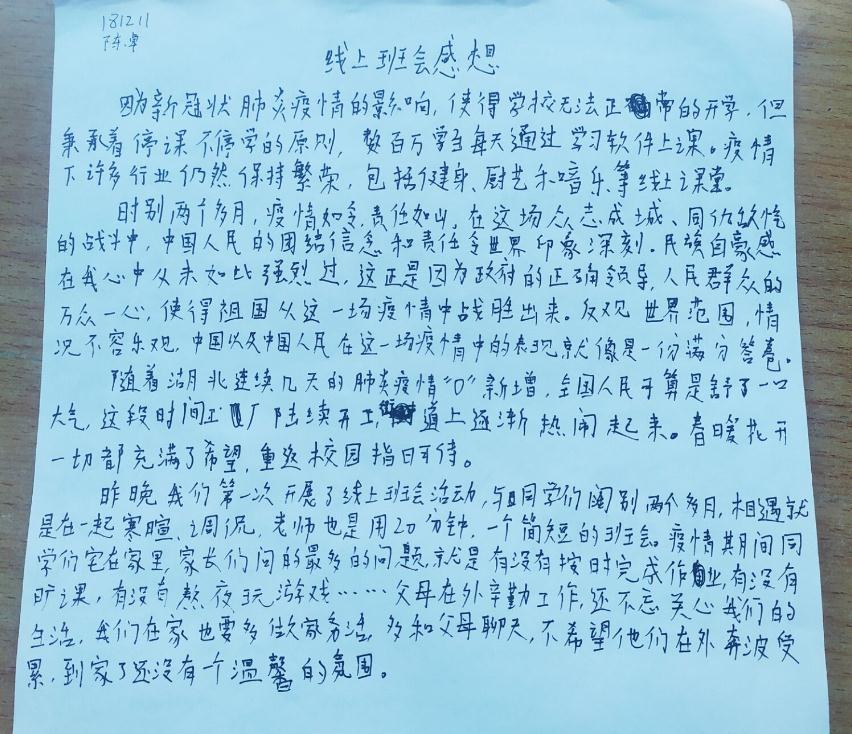 181211
线上班会感想
因为新冠状肺炎疫情的影响，使得学校无法正常的开学，但
秉承着停课不停学的原则，数百万学生每天通过学习软件上课。疫情
下许多行业仍然保持繁荣，包括健身、厨艺和音乐等线上课堂。
时别两个多月，疫情如令，责任如山，在这场众志成城、同仇敌忾
的战斗中，中国人民的团结信念和责任令世界印象深刻。民族自豪感
在我心中从未如此强烈过，这正是因为政府的正确领导，人民群众的
万众一心，使得祖国从这一场疫情中战胜出来。反观世界范围，情
况不容乐观，中国以及中国人民在这一场疫情中的表现就像是一份满分答卷。
随着湖北连续几天的肺炎疫情“0”新增，全国人民可算是舒了一口
大气，这段时间工厂陆续开工，街道上逐渐热闹起来。春暖花开
一切都充满了希望，重返校园指日可待。
昨晚我们第一次开展了线上班会活动，与同学们阔别两个多月，相遇就
是在一起寒暄、调侃，老师也是用20分钟，一个简短的班会。疫情期间同
学们宅在家里，家长们问的最多的问题，就是有没有按时完成作业，有没有
旷课，有没有熬夜玩游戏……父母在外辛勤工作，还不忘关心我们的
生活，我们在家也要多做家务活，多和父母聊天，不希望他们在外奔波受
累，到家了还没有个温馨的氛围。